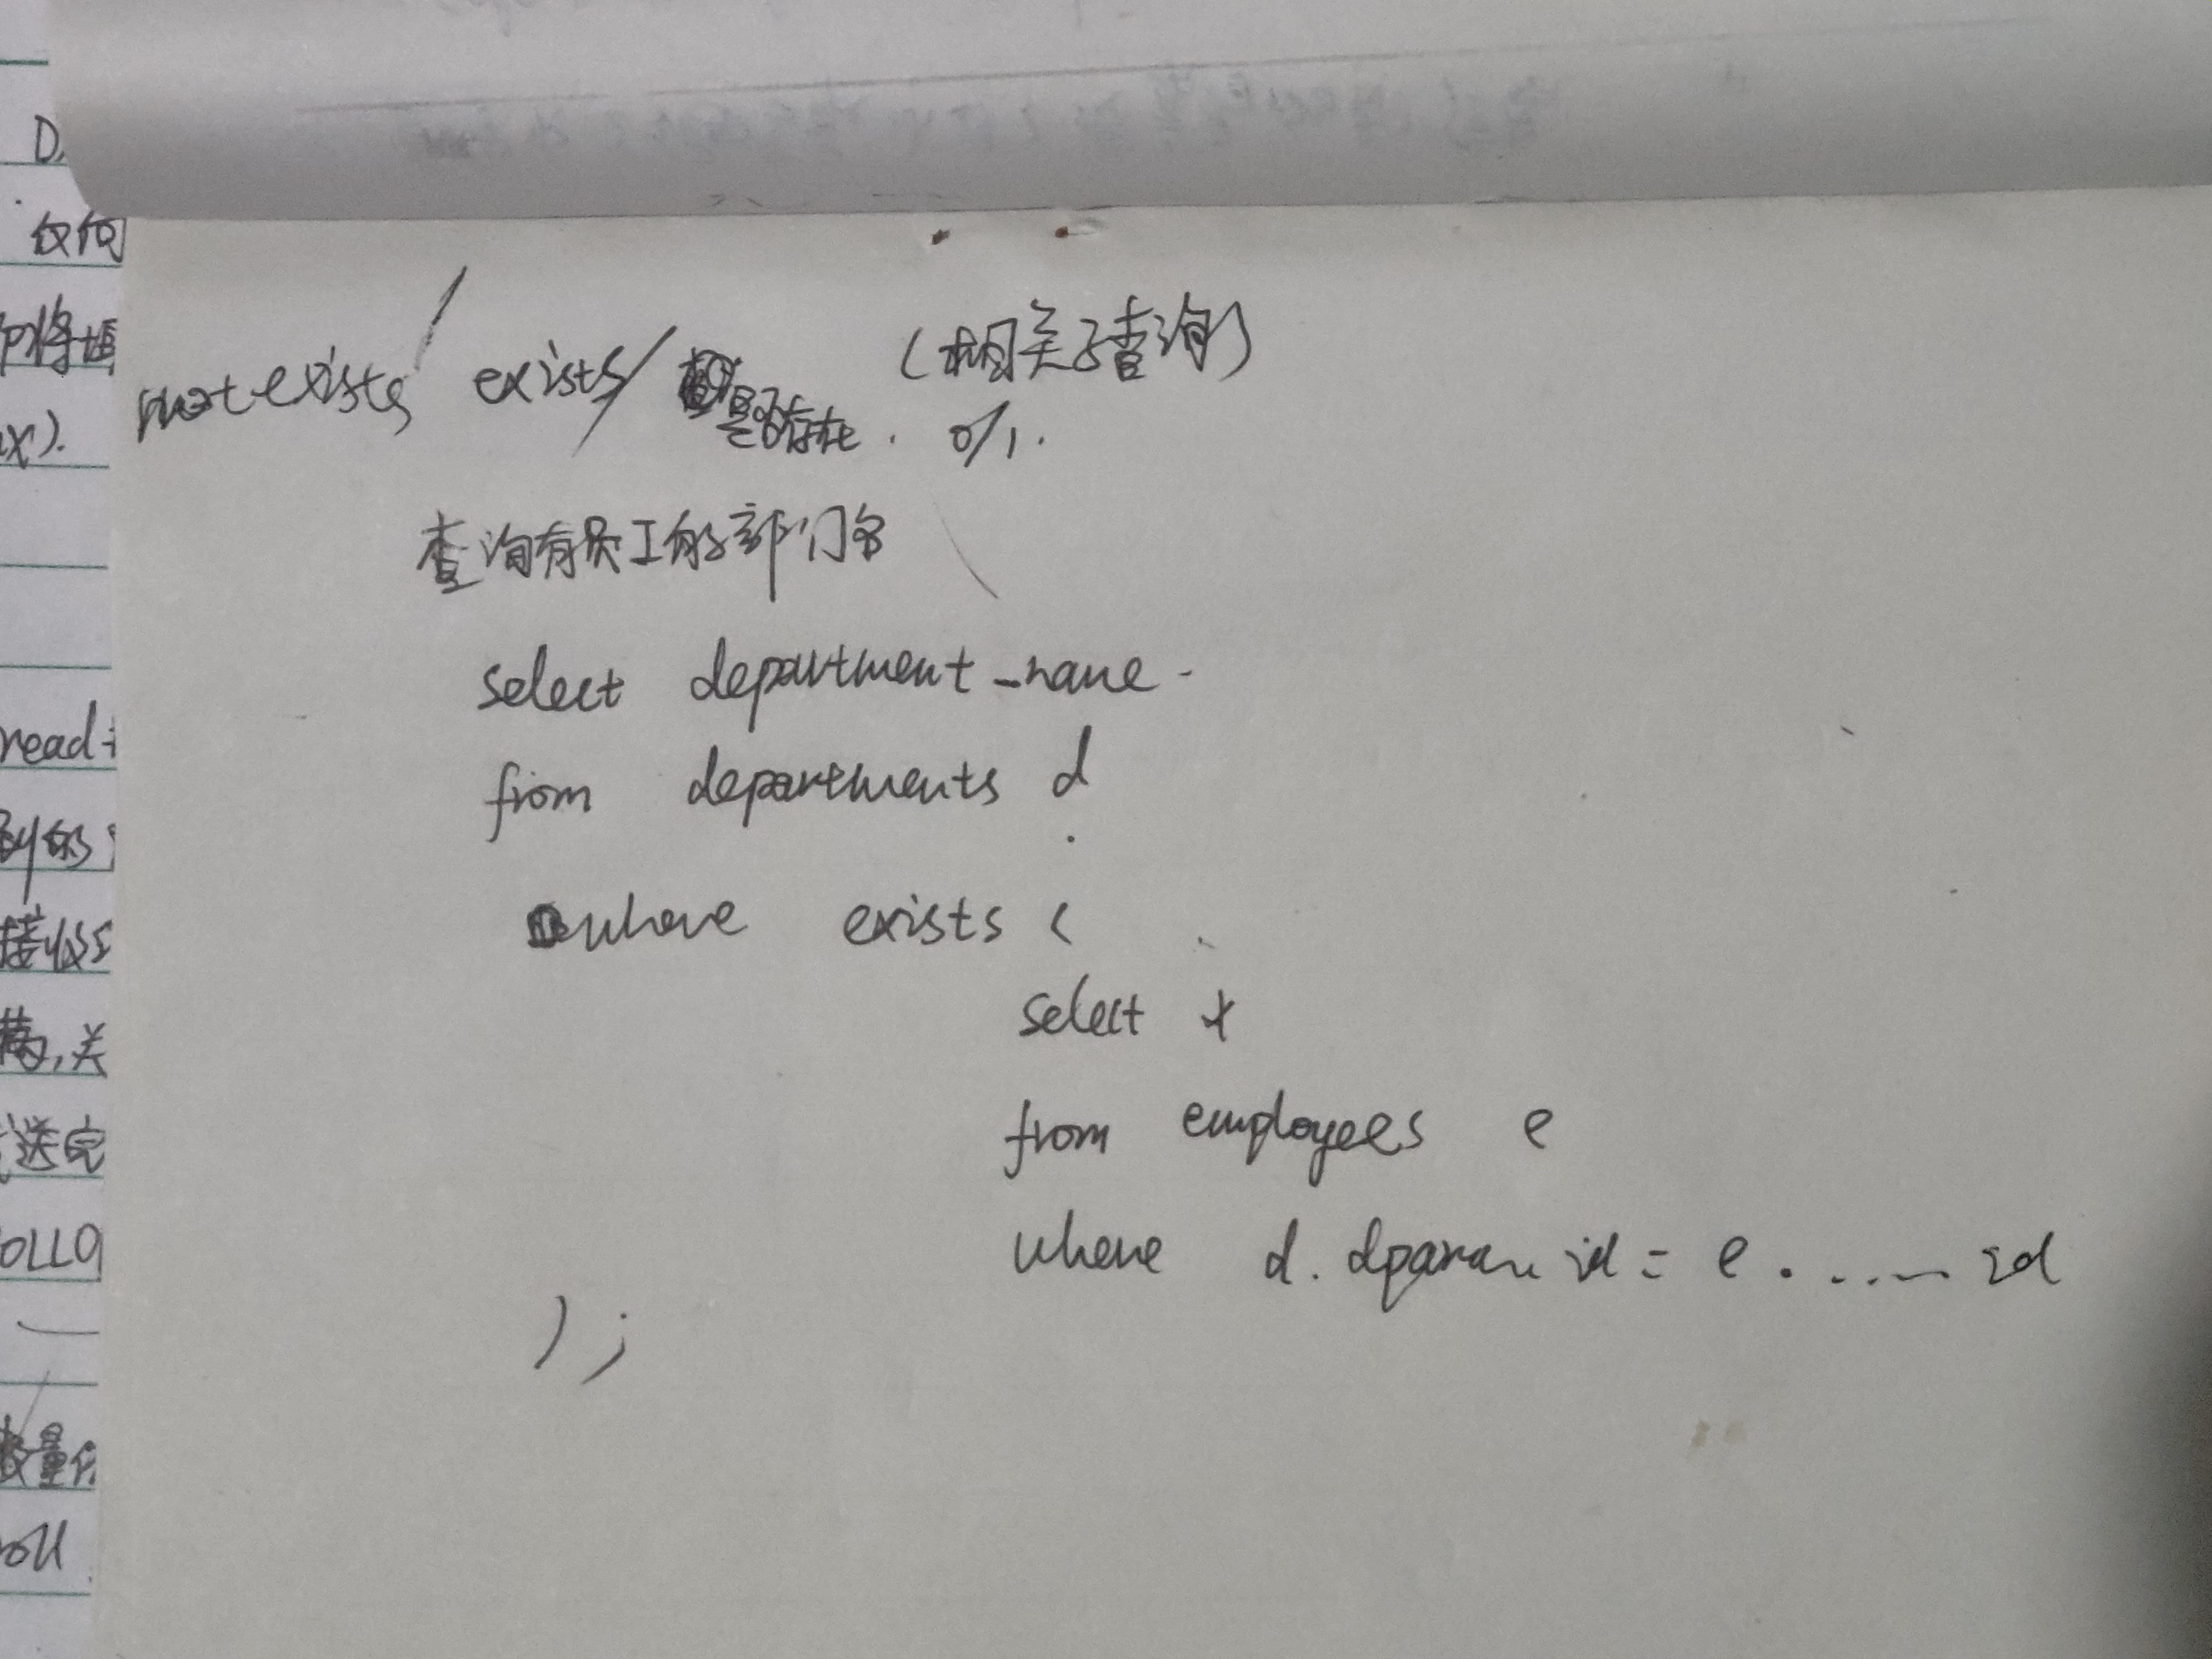 D.
仅何
即将
x).
not exists/ exists/ 是否存在. 0/1. (相关子查询)
查询有员工的部门名
select department_name
from departments d
where exists (
select *
from employees e
where d. dparan id = e . .... id
) ;
read
的
接收
满,关
送完
OLLO
数量
oll